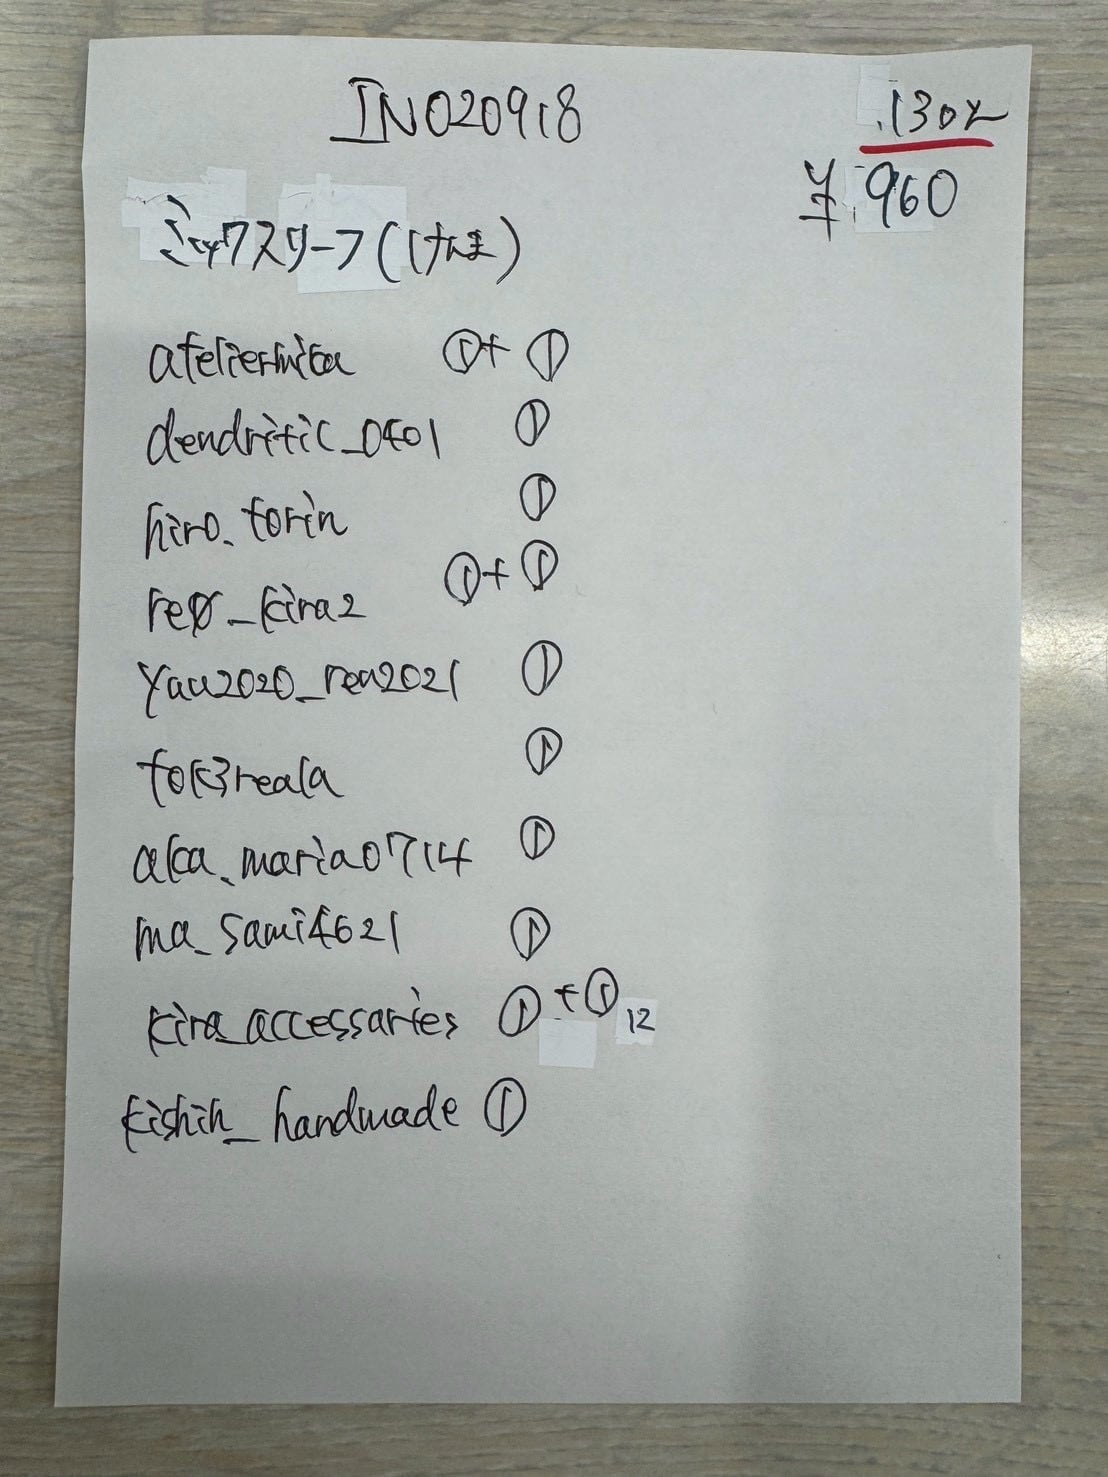 IN020918
.130Y
¥ 960
ミックスリーフ(けんま)
ateliermica ①+ ①
dendritic_0401 ①
hiro.torin ①
reo_kira2 ①+①
yau2020_rea2021 ①
tok3reala ①
aka.maria0714 ①
ma_sami4621 ①
kira_accessaries ①+① 12
kishih_handmade ①